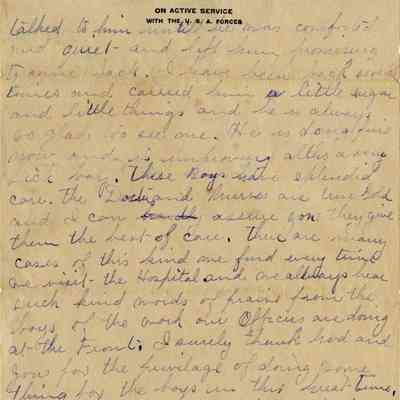 ON ACTIVE SERVICE
WITH THE U. S. A. FORCES
talked to him until he was comforted
and quiet - and left him promising
to come back. I have been back several
times and carried him a little sugar
and little things and he is always
so glad to see me. He is doing fine
now and is improving altho a very
sick boy. These Boys have splendid
care. the Doctors and Nurses are true blue
and I can assure you they give
them the best of care. There are many
cases of this kind we find every time
we visit the Hospital and we always hear
such kind words of praise from the
boys of the work our Officers are doing
at the Front. I surely thank God and
you for the privilage of doing some
thing for the boys in this great time.